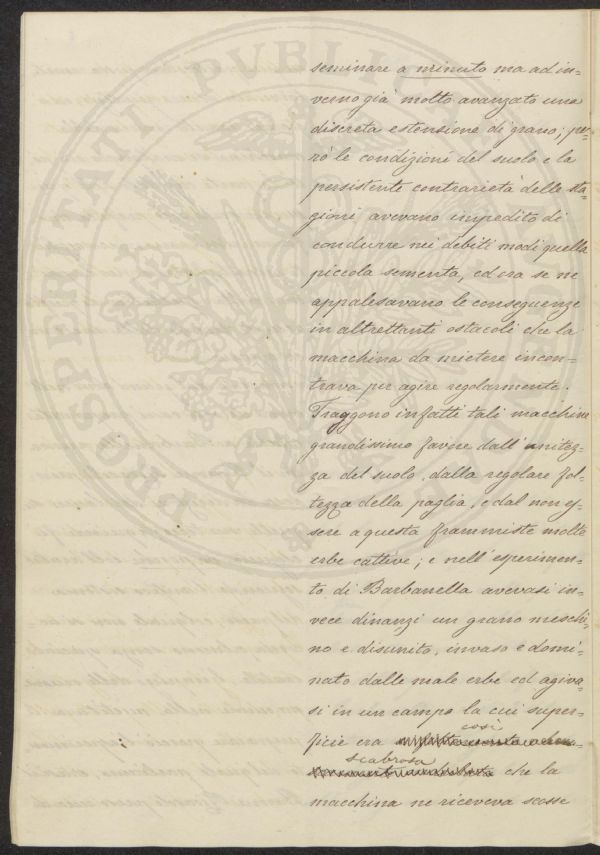 seminare a minuto ma ad in=
verno già molto avanzato una
discreta estensione di grano; pe=
rò le condizioni del suolo e la
persistente contrarietà delle sta=
gioni avevano impedito di
condurre nei debiti modi quella
piccola sementa, ed ora se ne
appalesavano le conseguenze
in altrettanti ostacoli che la
macchina da mietere incon=
trava per agire regolarmente.
Traggono infatti tali macchine
grandissimo favore dall'unitez=
za del suolo, dalla regolare fol=
tezza della paglia, e dal non es=
sere a questa frammiste molte
erbe cattive; e nell'esperimen=
to di Barbanella avevasi in=
vece dinanzi un grano meschi=
no e disunito, invaso e domi=
nato dalle male erbe ed agiva=
si in un campo la cui super=
così
ficie era
scabrosa
che la
macchina ne riceveva scosse